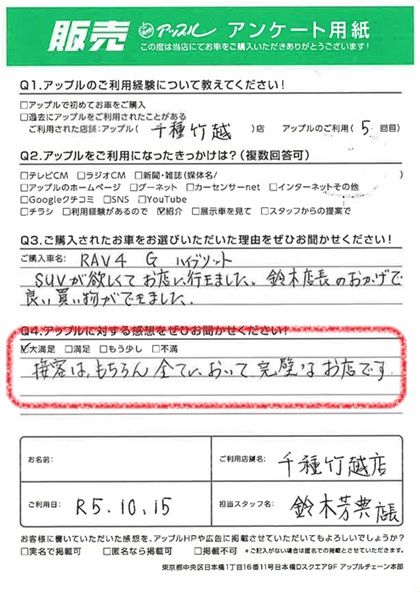 販売 アップル アンケート用紙
この度は当店にてお車をご購入いただきありがとうございます!
Q1.アップルのご利用経験について教えてください!
□アップルで初めてお車をご購入
□過去にアップルをご利用されたことがある
ご利用された店舗:アップル( 千種竹越 )店 アップルのご利用( 5 回目)
Q2.アップルをご利用になったきっかけは?(複数回答可)
□テレビCM □ラジオCM □新聞・雑誌(媒体名/ )
□アップルのホームページ □グーネット □カーセンサーnet □インターネットその他
□Googleクチコミ □SNS □YouTube
□チラシ □利用経験があるので ☑紹介 □展示車を見て □スタッフからの提案で
Q3.ご購入されたお車をお選びいただいた理由をぜひお聞かせください!
ご購入車名: RAV4 G ハイブリット
SUVが欲しくてお店に行きました。鈴木店長のおかげで
良い買い物ができました。
Q4.アップルに対する感想をぜひお聞かせください!
☑大満足 □満足 □もう少し □不満
接客は、もちろん全てにおいて完璧なお店です
お名前: ご利用店舗名: 千種竹越店
ご利用日: R5.10.15 担当スタッフ名: 鈴木芳典店長
お客様に書いていただいた感想を、アップルHPや広告に掲載させていただいてもよろしいでしょうか?
□実名で掲載可 □匿名なら掲載可 □掲載不可 *ご記入がない場合は匿名での掲載とさせていただきます。
東京都中央区日本橋1丁目16番11号日本橋Dスクエア9F アップルチェーン本部